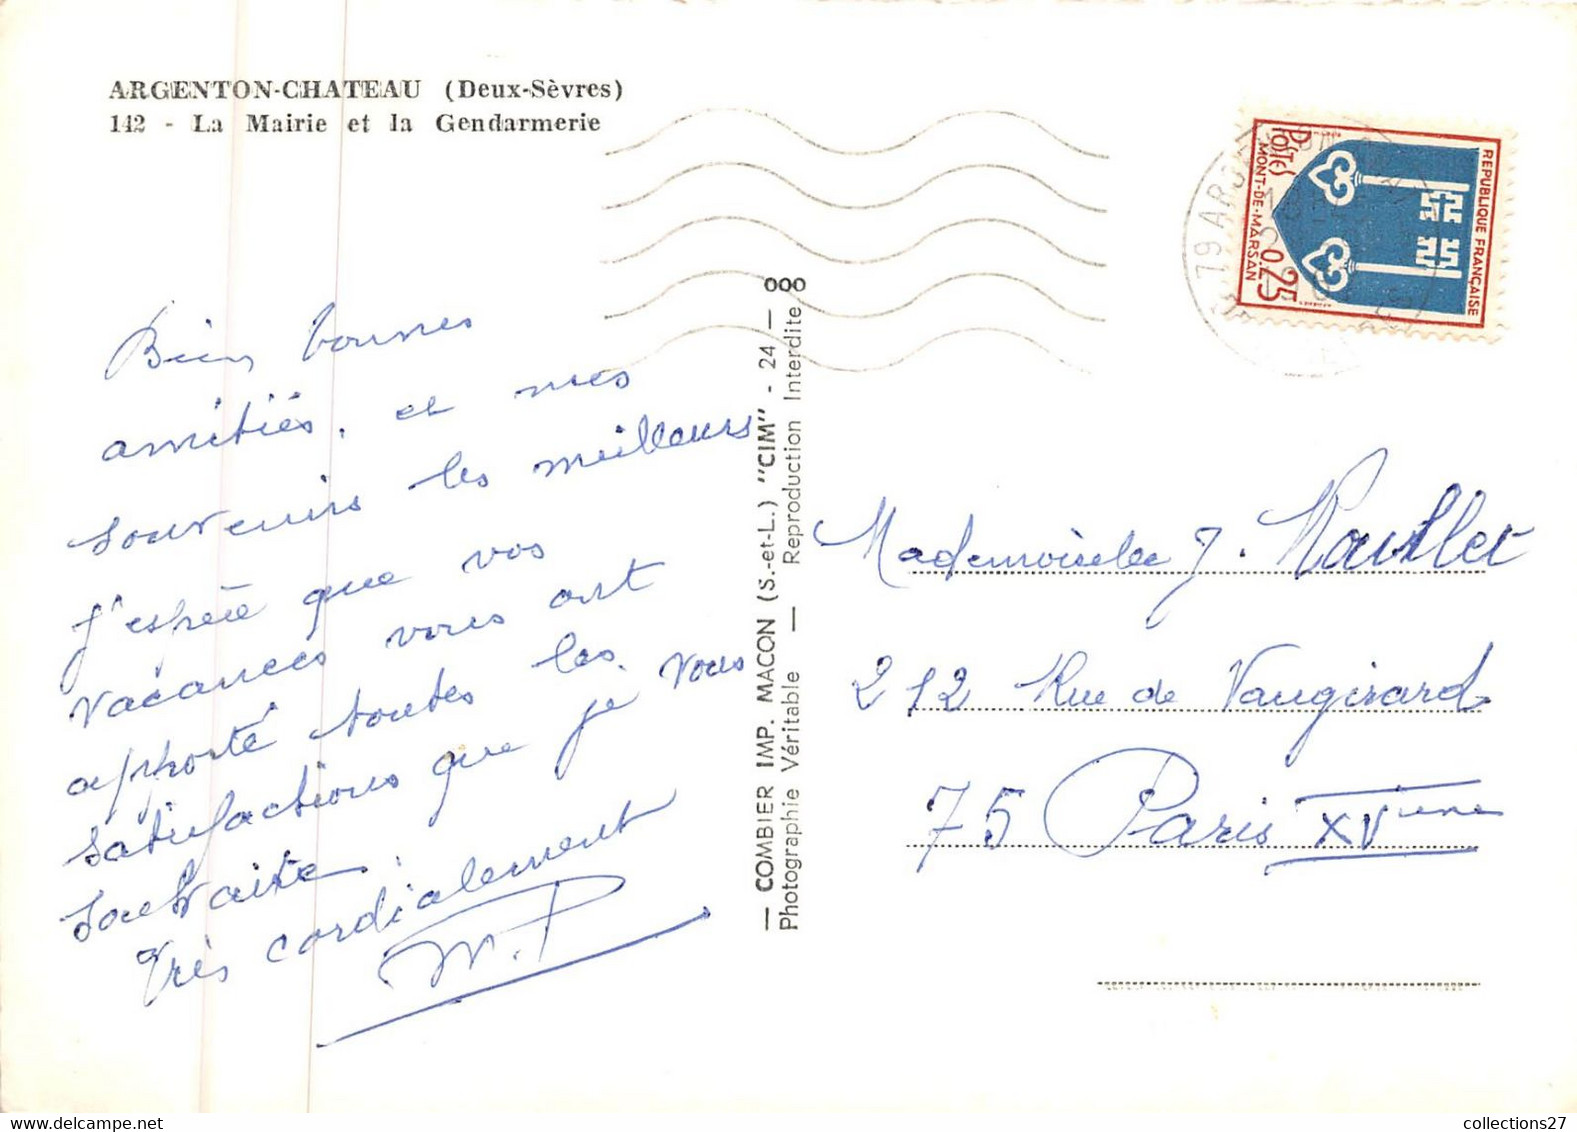 ARGENTON-CHATEAU (Deux-Sèvres)
142 - La Mairie et la Gendarmerie
Bien bonnes
amitiés, et mes
souvenirs les meilleurs
J'espère que vos
vacances vous ont
apporté toutes les
satisfactions que je vous
souhaite.
Très cordialement
— COMBIER IMP. MACON (S.-et-L.) "CIM" - 24 —
Photographie Véritable — Reproduction Interdite
000
REPUBLIQUE FRANÇAISE
POSTES
MONT-DE-MARSAN
0.25
79 ARGE
Mademoiselle J.
212 Rue de Vaugirard
75 Paris XVième
collections27